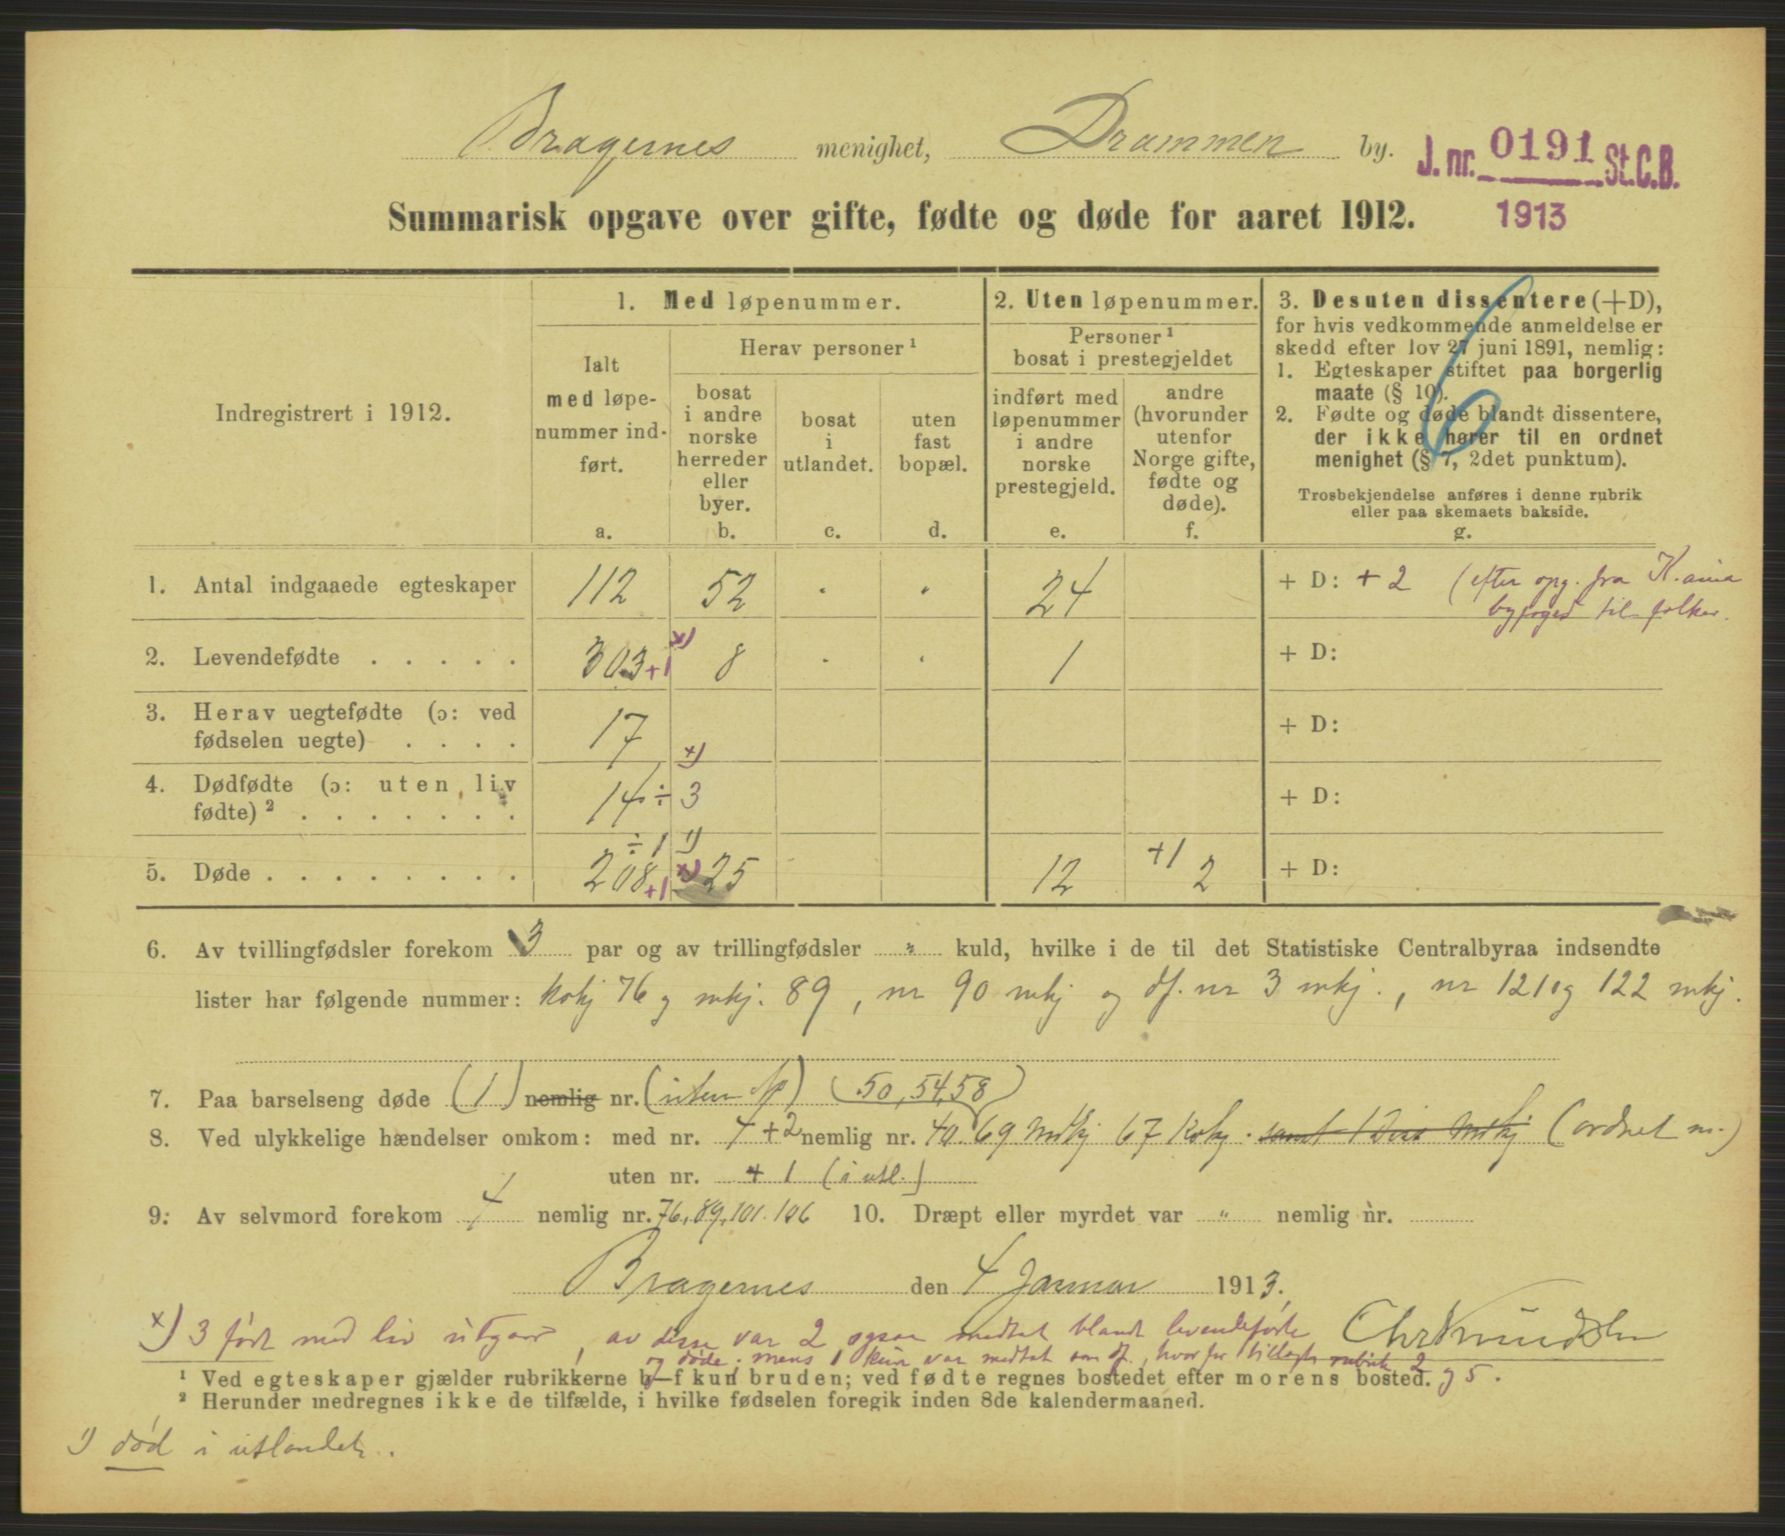 Bragernes menighet, Drammen by. J. nr. 0191 St.C.B.
1913
Summarisk opgave over gifte, fødte og døde for aaret 1912.
Indregistrert i 1912.
1. Med løpenummer.
Ialt
med løpe-
nummer ind-
ført.
a.
Herav personer ¹
bosat
i andre
norske
herreder
eller
byer.
b.
bosat
i
utlandet.
c.
uten
fast
bopæl.
d.
2. Uten løpenummer.
Personer ¹
bosat i prestegjeldet
indført med
løpenummer
i andre
norske
prestegjeld.
e.
andre
(hvorunder
utenfor
Norge gifte,
fødte og
døde).
f.
3. Desuten dissentere (+D),
for hvis vedkommende anmeldelse er
skedd efter lov 27 juni 1891, nemlig:
1. Egteskaper stiftet paa borgerlig
maate (§ 10).
2. Fødte og døde blandt dissentere,
der ikke hører til en ordnet
menighet (§ 7, 2det punktum).
Trosbekjendelse anføres i denne rubrik
eller paa skemaets bakside.
g.
1. Antal indgaaede egteskaper 112 52 " " 24 + D: + 2 (efter opg. fra K.ania
byfoged til folket.
2. Levendefødte . . . . . 303 +1 x) 8 " " 1 + D:
3. Herav uegtefødte (ɔ: ved
fødselen uegte) . . . . 17 + D:
4. Dødfødte (ɔ: uten liv
fødte) ² . . . . . . . 14 ÷ 3 x) + D:
÷ 1 1)
5. Døde . . . . . . . . . 208 +1 x) 25 12 +1 2 + D:
6. Av tvillingfødsler forekom 3 par og av trillingfødsler " kuld, hvilke i de til det Statistiske Centralbyraa indsendte
lister har følgende nummer: kvkj 76 og mkj. 89, nr 90 mkj og df. nr 3 mkj., nr 121 og 122 mkj.
7. Paa barselseng døde (1) nemlig nr. (uten ) (50, 54, 58)
8. Ved ulykkelige hændelser omkom: med nr. 4 + 2 nemlig nr. 40. 69 Mdkj 67 Kvkj. samt 1 Mdkj (ordnet m.)
uten nr. + 1 (i utl.)
9. Av selvmord forekom 4 nemlig nr. 76, 89, 101. 106 10. Dræpt eller myrdet var " nemlig nr.
Bragernes den 4 Januar 1913.
x) 3 født med liv utgaar, av disse var 2 ogsaa medtat blandt levendefødte Chr Knudsen
og døde, mens 1 kun var medtat som df., hvorfor tillagt rubrik 2
og 5.
¹ Ved egteskaper gjælder rubrikkerne b–f kun bruden; ved fødte regnes bostedet efter morens bosted.
² Herunder medregnes ikke de tilfælde, i hvilke fødselen foregik inden 8de kalendermaaned.
1) død i utlandet.